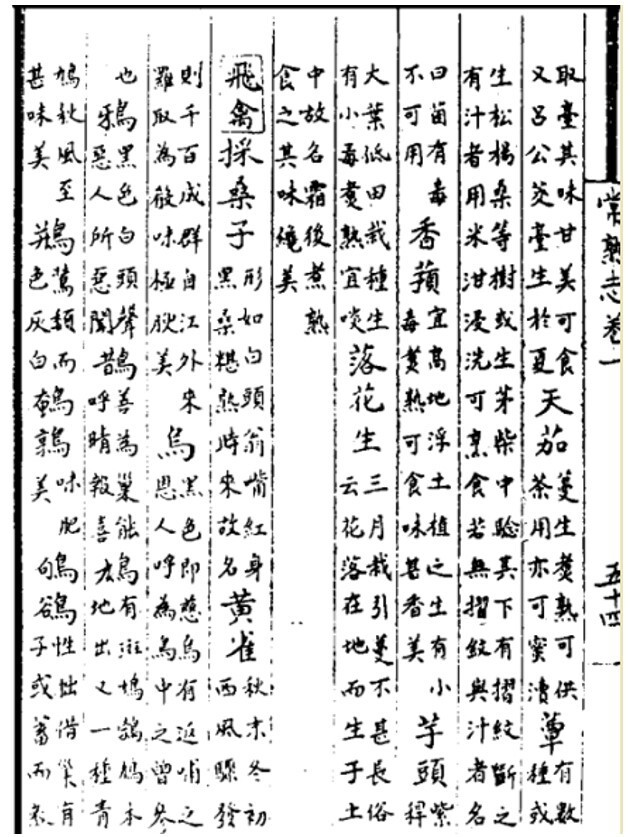 取臺其味甘美可食又呂公茭臺生於夏天茄蔓生煑熟可供茶用亦可蜜漬蕈有數種或
生松楊桑等樹或生茅柴中騐其下有摺紋斷之有汁者用米泔浸洗可烹食若無摺紋與汁者名
曰菌有毒不可用香蕷宜高地浮土植之生有小毒煑熟可食味甚香美芋頭紫稈
大葉低田栽種生有小毒煑熟宜啖落花生三月栽引蔓不甚長俗云花落在地而生子土
中故名霜後煮熟食之其味絶美
飛禽採桑子形如白頭翁嘴紅身黑桑椹熟時來故名黃雀秋末冬初西風驟發
則千百成群自江外來羅取為餚味極腴美烏黑色即慈烏有返哺之恩人呼為鳥中之曾參
也鴉黑色白頭聲惡人所惡聞鵲善為巢能呼晴報喜有斑鳩鵓鳩本地出又一種青
鳩秋風至甚味美類而色灰白鵪鶉味肥美鴝鵒性拙借巢有子或蓄而
常熟志卷一
五十四